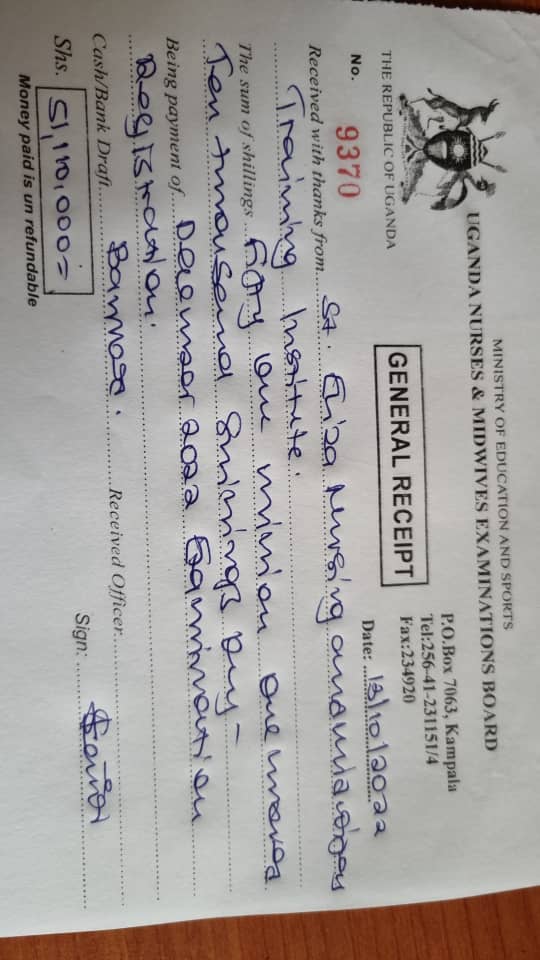 MINISTRY OF EDUCATION AND SPORTS
UGANDA NURSES & MIDWIVES EXAMINATIONS BOARD
P.O.Box 7063, Kampala
Tel:256-41-231151/4
Fax:234920
THE REPUBLIC OF UGANDA
GENERAL RECEIPT
No. 9370
Date: 13/10/2022
Received with thanks from St. Eliza Nursing and midwifery
Training Institute.
The sum of shillings Fifty one million one hundred
Ten thousand Shillings Only –
Being payment of December 2022 Examination
Registration.
Cash/Bank Draft Received Officer
Shs. 51,110,000= Sign:
Money paid is un refundable